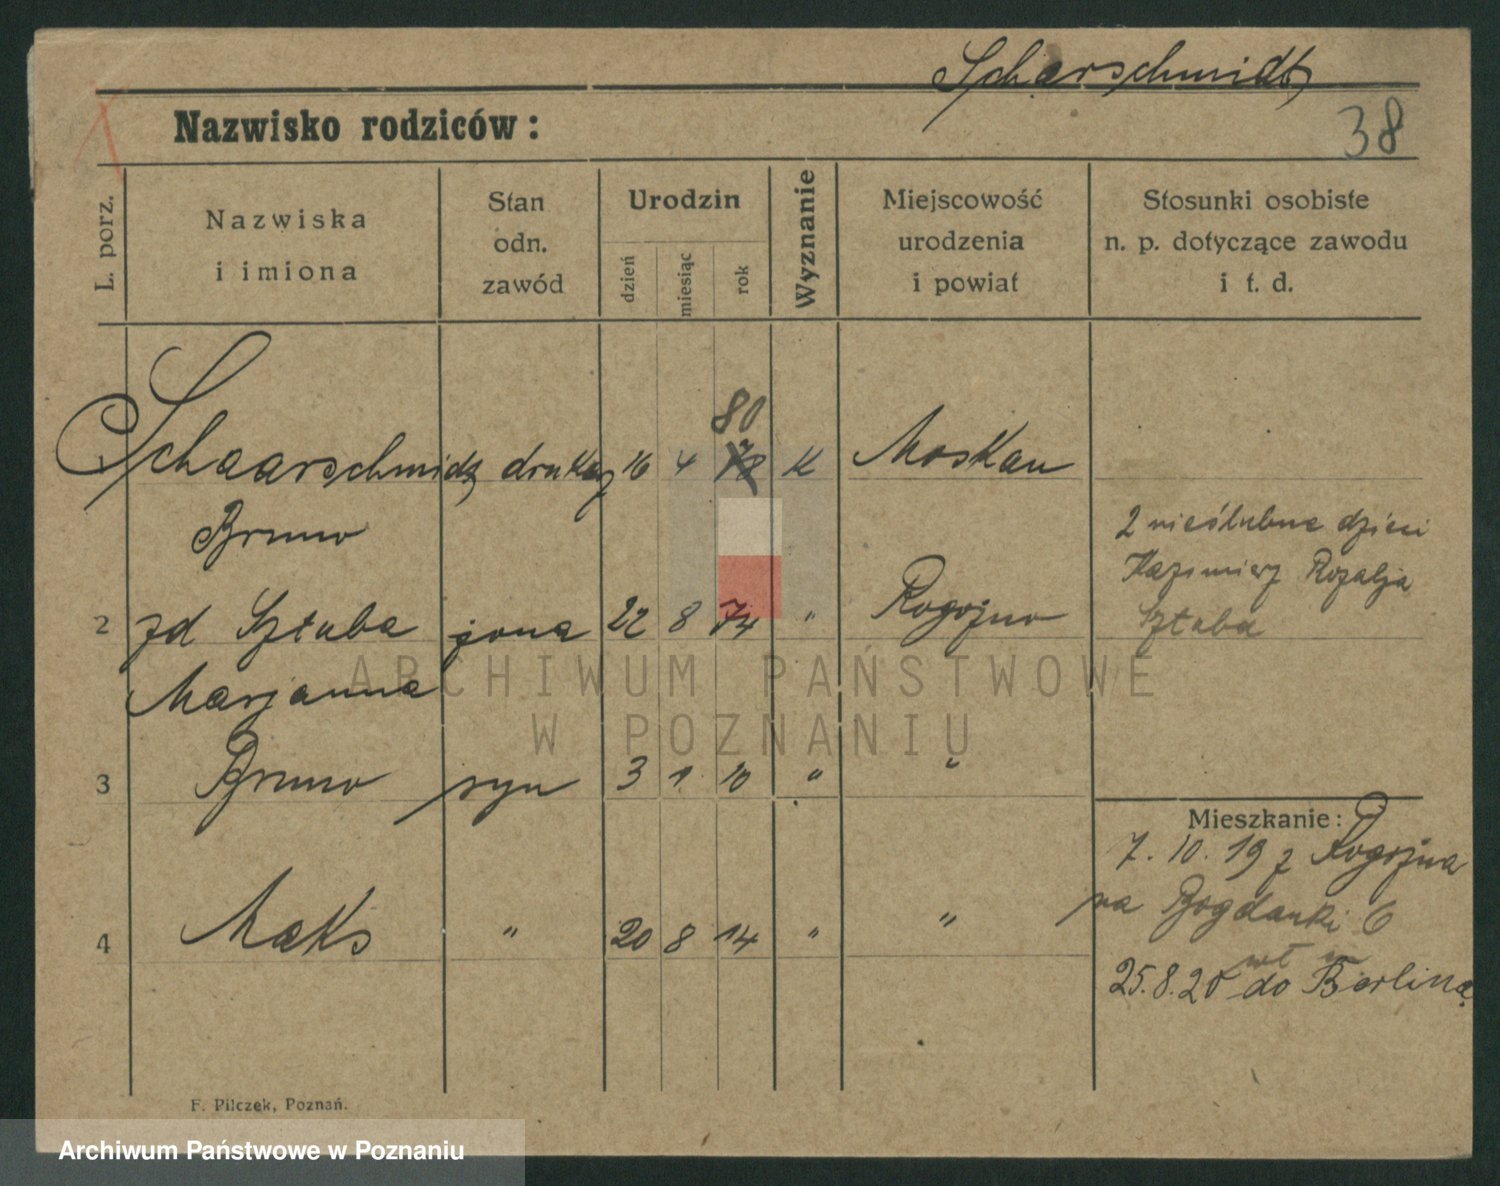 Scharschmidt
38
Nazwisko rodziców:
L. porz.
Nazwiska
i imiona
Stan
odn.
zawód
Urodzin
dzień
miesiąc
rok
Wyznanie
Miejscowość
urodzenia
i powiat
Stosunki osobiste
n. p. dotyczące zawodu
i t. d.
80
1 Schaarschmidt drukarz 16 4 78 K Moskau
Bruno
2 nieślubne dzieci
Kazimierz Rozalja
Sztuba
2 zd Sztuba żona 22 8 74 " Rogoźno
Marjanna
3 Bruno syn 3 1 10 " "
Mieszkanie:
7.10.19 z Rogoźna
na Bogdanki 6
4 Maks " 20 8 14 " "
25.8.20 do Berlina
F. Pilczek, Poznań.
ARCHIWUM PAŃSTWOWE
W POZNANIU
Archiwum Państwowe w Poznaniu